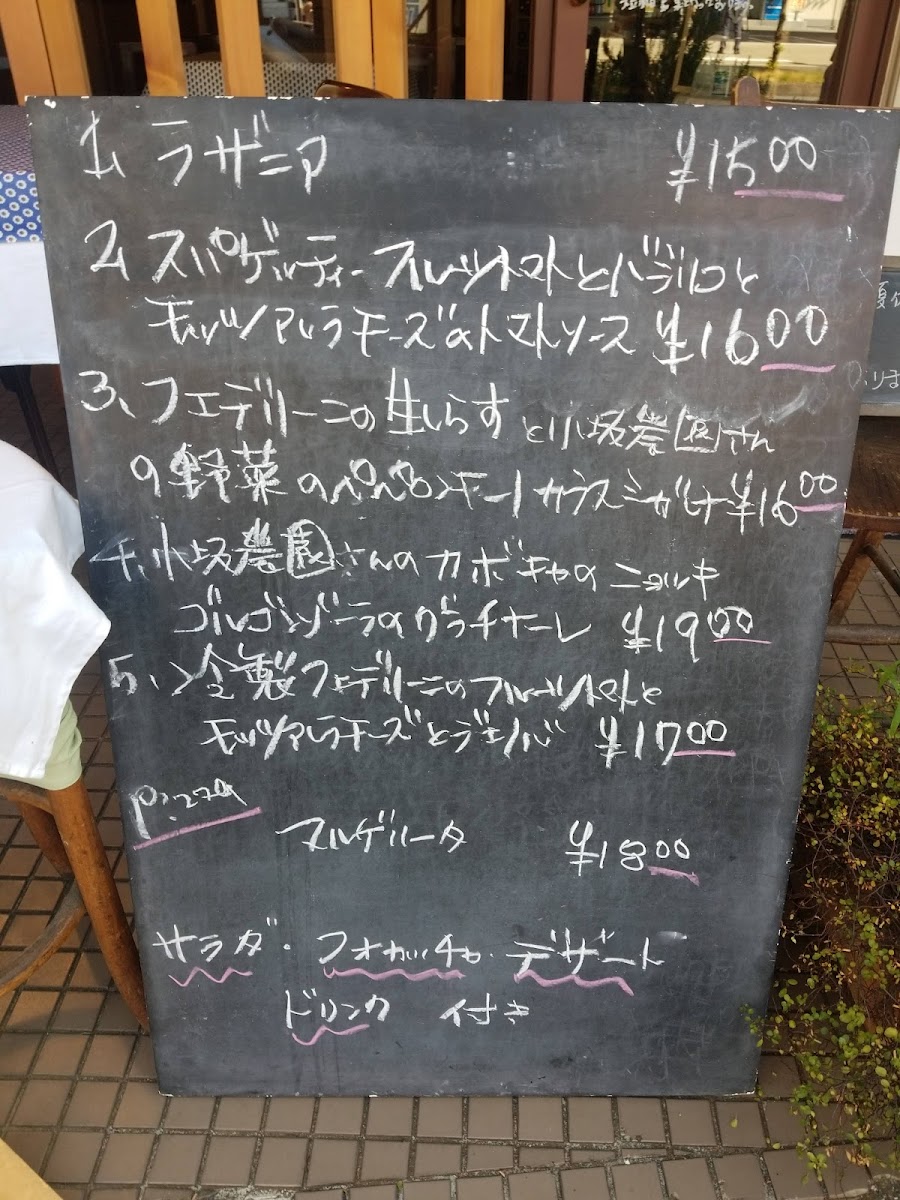 1、ラザニア ¥1500
2、スパゲッティーフルーツトマトとバジルと
モッツァレラチーズのトマトソース ¥1600
3、フェデリーニの生しらすと小坂農園さん
の野菜のペペロンチーノカラスミがけ ¥1600
4、小坂農園さんのカボチャのニョッキ
ゴルゴンゾーラのグラチナーレ ¥1900
5、冷製フェデリーニのフルーツトマトと
モッツァレラチーズとジェノバ ¥1700
Pizza
マルゲリータ ¥1800
サラダ・フォカッチャ・デザート
ドリンク 付き